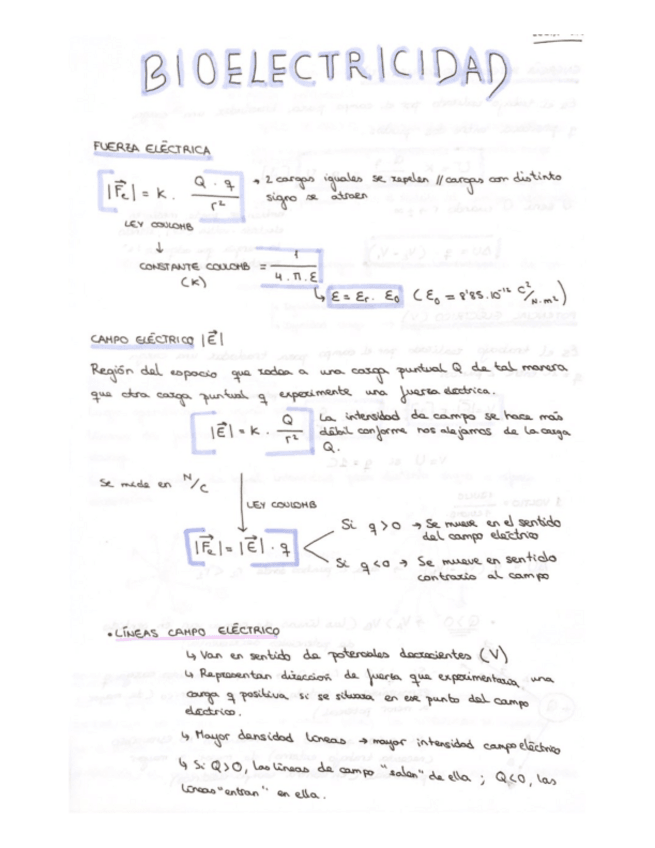 BIOELECTRICIDAD
FUERZA ELÉCTRICA
|F⃗e| = K · Q · q / r²
→ 2 cargas iguales se repelen // cargas con distinto
signo se atraen
LEY COULOMB
↓
CONSTANTE COULOMB = 1 / 4 · π · ε
(K)
↳ ε = εr · ε0 (ε0 = 8'85·10⁻¹² C²/N·m²)
CAMPO ELÉCTRICO |E⃗|
Región del espacio que rodea a una carga puntual Q de tal manera
que otra carga puntual q experimente una fuerza eléctrica.
|E⃗| = K · Q / r²
La intensidad de campo se hace más
débil conforme nos alejamos de la carga
Q.
Se mide en N/C
LEY COULOMB
|F⃗e| = |E⃗| · q
Si q > 0 → Se mueve en el sentido
del campo eléctrico
Si q < 0 → Se mueve en sentido
contrario al campo
• LÍNEAS CAMPO ELÉCTRICO
↳ Van en sentido de potenciales decrecientes (V)
↳ Representan dirección de fuerza que experimentaría una
carga q positiva si se situara en ese punto del campo
eléctrico.
↳ Mayor densidad líneas → mayor intensidad campo eléctrico
↳ Si Q>0, las líneas de campo "salen" de ella ; Q<0, las
líneas "entran" en ella.